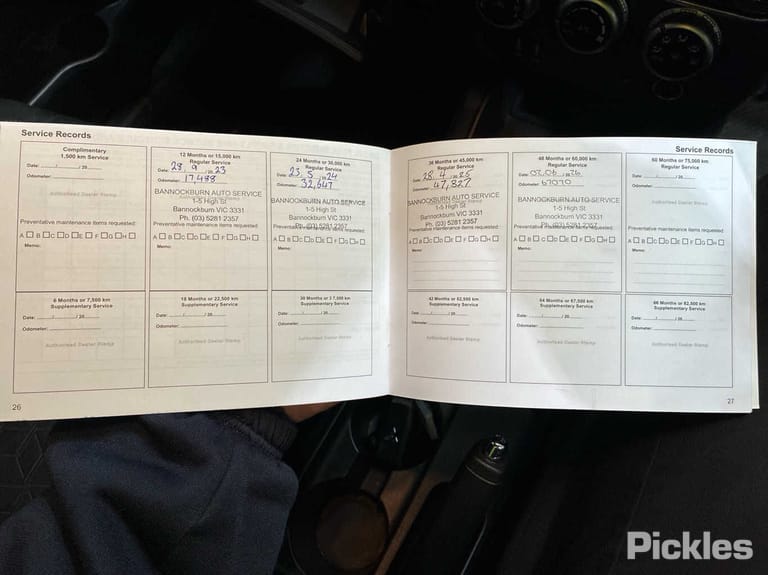 Service Records
Complimentary
1,500 km Service
Date: / / 20
Odometer:
Authorised Dealer Stamp
Preventative maintenance items requested:
A B C D E F G H
Memo:
12 Months or 15,000 km
Regular Service
Date: 28 / 9 / 2023
Odometer: 17,488
BANNOCKBURN AUTO SERVICE
1-5 High St
Bannockburn VIC 3331
Ph. (03) 5281 2357
Preventative maintenance items requested:
A B C D E F G H
Memo:
24 Months or 30,000 km
Regular Service
Date: 23 / 5 / 2024
Odometer: 32,647
BANNOCKBURN AUTO SERVICE
1-5 High St
Bannockburn VIC 3331
Ph. (03) 5281 2357
Preventative maintenance items requested:
A B C D E F G H
Memo:
6 Months or 7,500 km
Supplementary Service
Date: / / 20
Odometer:
Authorised Dealer Stamp
18 Months or 22,500 km
Supplementary Service
Date: / / 20
Odometer:
Authorised Dealer Stamp
30 Months or 37,500 km
Supplementary Service
Date: / / 20
Odometer:
Authorised Dealer Stamp
26
Service Records
36 Months or 45,000 km
Regular Service
Date: 28 / 4 / 2025
Odometer: 47,827
BANNOCKBURN AUTO SERVICE
1-5 High St
Bannockburn VIC 3331
Ph. (03) 5281 2357
Preventative maintenance items requested:
A B C D E F G H
Memo:
48 Months or 60,000 km
Regular Service
Date:
Odometer: 67070
BANNOCKBURN AUTO SERVICE
1-5 High St
Bannockburn VIC 3331
Ph. (03) 5281 2357
Preventative maintenance items requested:
A B C D E F G H
Memo:
60 Months or 75,000 km
Regular Service
Date: / / 20
Odometer:
Authorised Dealer Stamp
Preventative maintenance items requested:
A B C D E F G H
Memo:
42 Months or 52,500 km
Supplementary Service
Date: / / 20
Odometer:
Authorised Dealer Stamp
54 Months or 67,500 km
Supplementary Service
Date: / / 20
Odometer:
Authorised Dealer Stamp
66 Months or 82,500 km
Supplementary Service
Date: / / 20
Odometer:
Authorised Dealer Stamp
27
Pickles